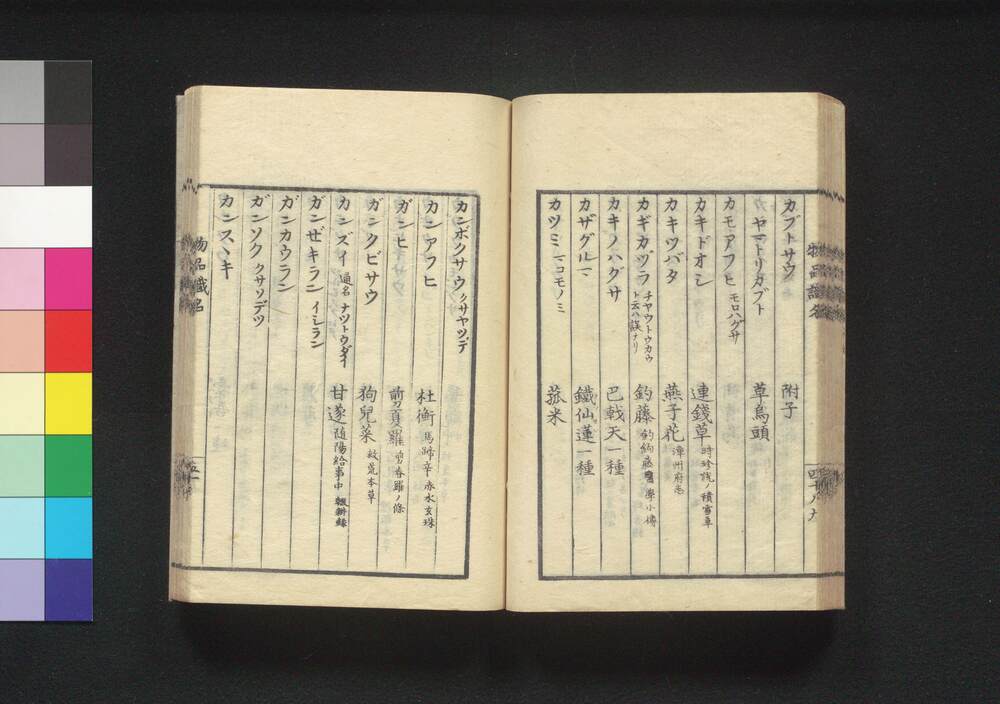 カブトサウ 附子
ヤマトリカブト 草烏頭
カモアフヒ モロハグサ
カキドオシ 連錢草 時珍說ノ積雪草
カキツバタ 燕子花 漳州府志
カギカヅラ チヤウトウカウト云ハ誤ナリ 釣藤
カキノハグサ 巴戟天一種
カザグルマ 鐵仙蓮一種
カツミ マコモノミ 菰米
カンボクサウ クサヤツデ
カンアフヒ 杜衡 馬蹄辛 赤水玄珠
ガンヒ 剪夏羅 剪春羅ノ條
ガンタビサウ 狗兒菜 救荒本草
カンズイ 通名 ナツトウダイ 甘遂 随陽給事中 輟耕錄
ガンゼキラン イシラン
ガンカウラン
ガンソク クサソデツ
カンスヽキ
物品識名